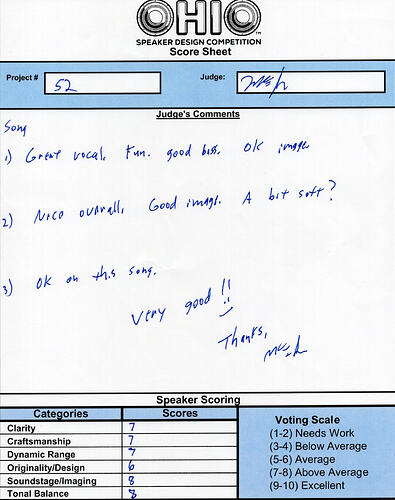 OHIO™
SPEAKER DESIGN COMPETITION
Score Sheet
Project # 52 Judge:
Judge's Comments
Song
1) Great vocal. Fun. good bass. OK image
2) Nice overall. Good image. A bit soft?
3) OK on this song.
Very good!!
Thanks,
Speaker Scoring
Categories Scores
Clarity 7
Craftsmanship 7
Dynamic Range 7
Originality/Design 6
Soundstage/Imaging 8
Tonal Balance 8
Voting Scale
(1-2) Needs Work
(3-4) Below Average
(5-6) Average
(7-8) Above Average
(9-10) Excellent